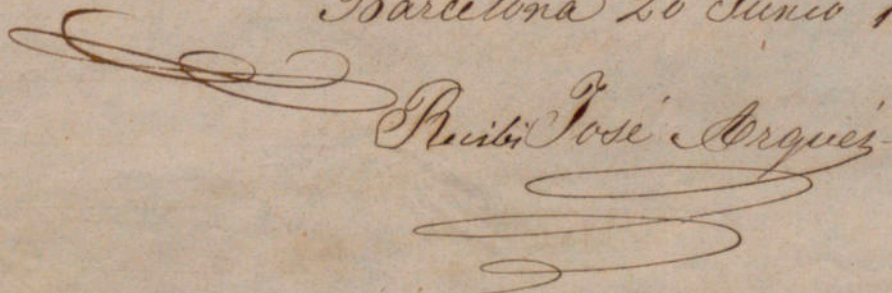 Barcelona 20 Junio
Recibí José Arqués